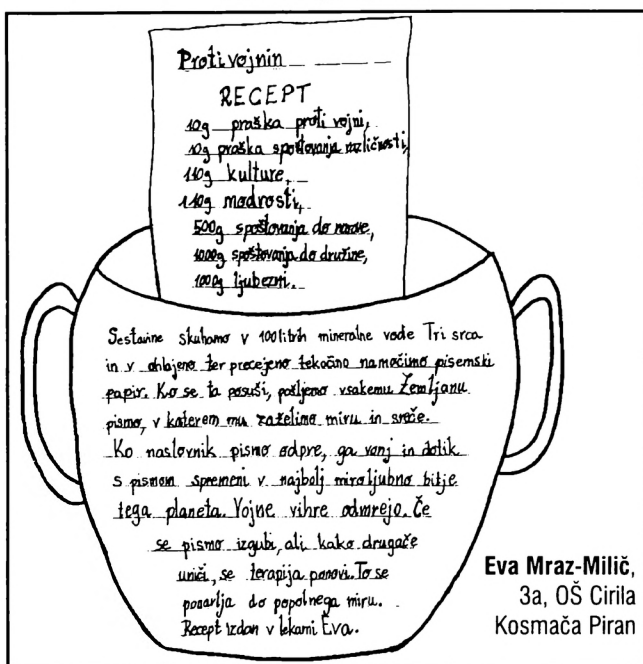 Protivojnin
RECEPT
10g praška proti vojni,
10g praška spoštovanja različnosti,
110g kulture,
110g modrosti,
500g spoštovanja do narave,
1000g spoštovanja do družine,
1000g ljubezni.
Sestavine skuhamo v 100 litrih mineralne vode Tri srca
in v ohlajeno ter precejeno tekočino namočimo pisemski
papir. Ko se ta posuši, pošljemo vsakemu Zemljanu
pismo, v katerem mu zaželimo miru in sreče.
Ko naslovnik pismo odpre, ga vonj in dotik
s pismom spremeni v najbolj miroljubno bitje
tega planeta. Vojne vihre odmrejo. Če
se pismo izgubi, ali kako drugače
uniči, se terapija ponovi. To se
ponavlja do popolnega miru.
Recept izdan v lekarni Eva.
Eva Mraz-Milič,
3a, OŠ Cirila
Kosmača Piran